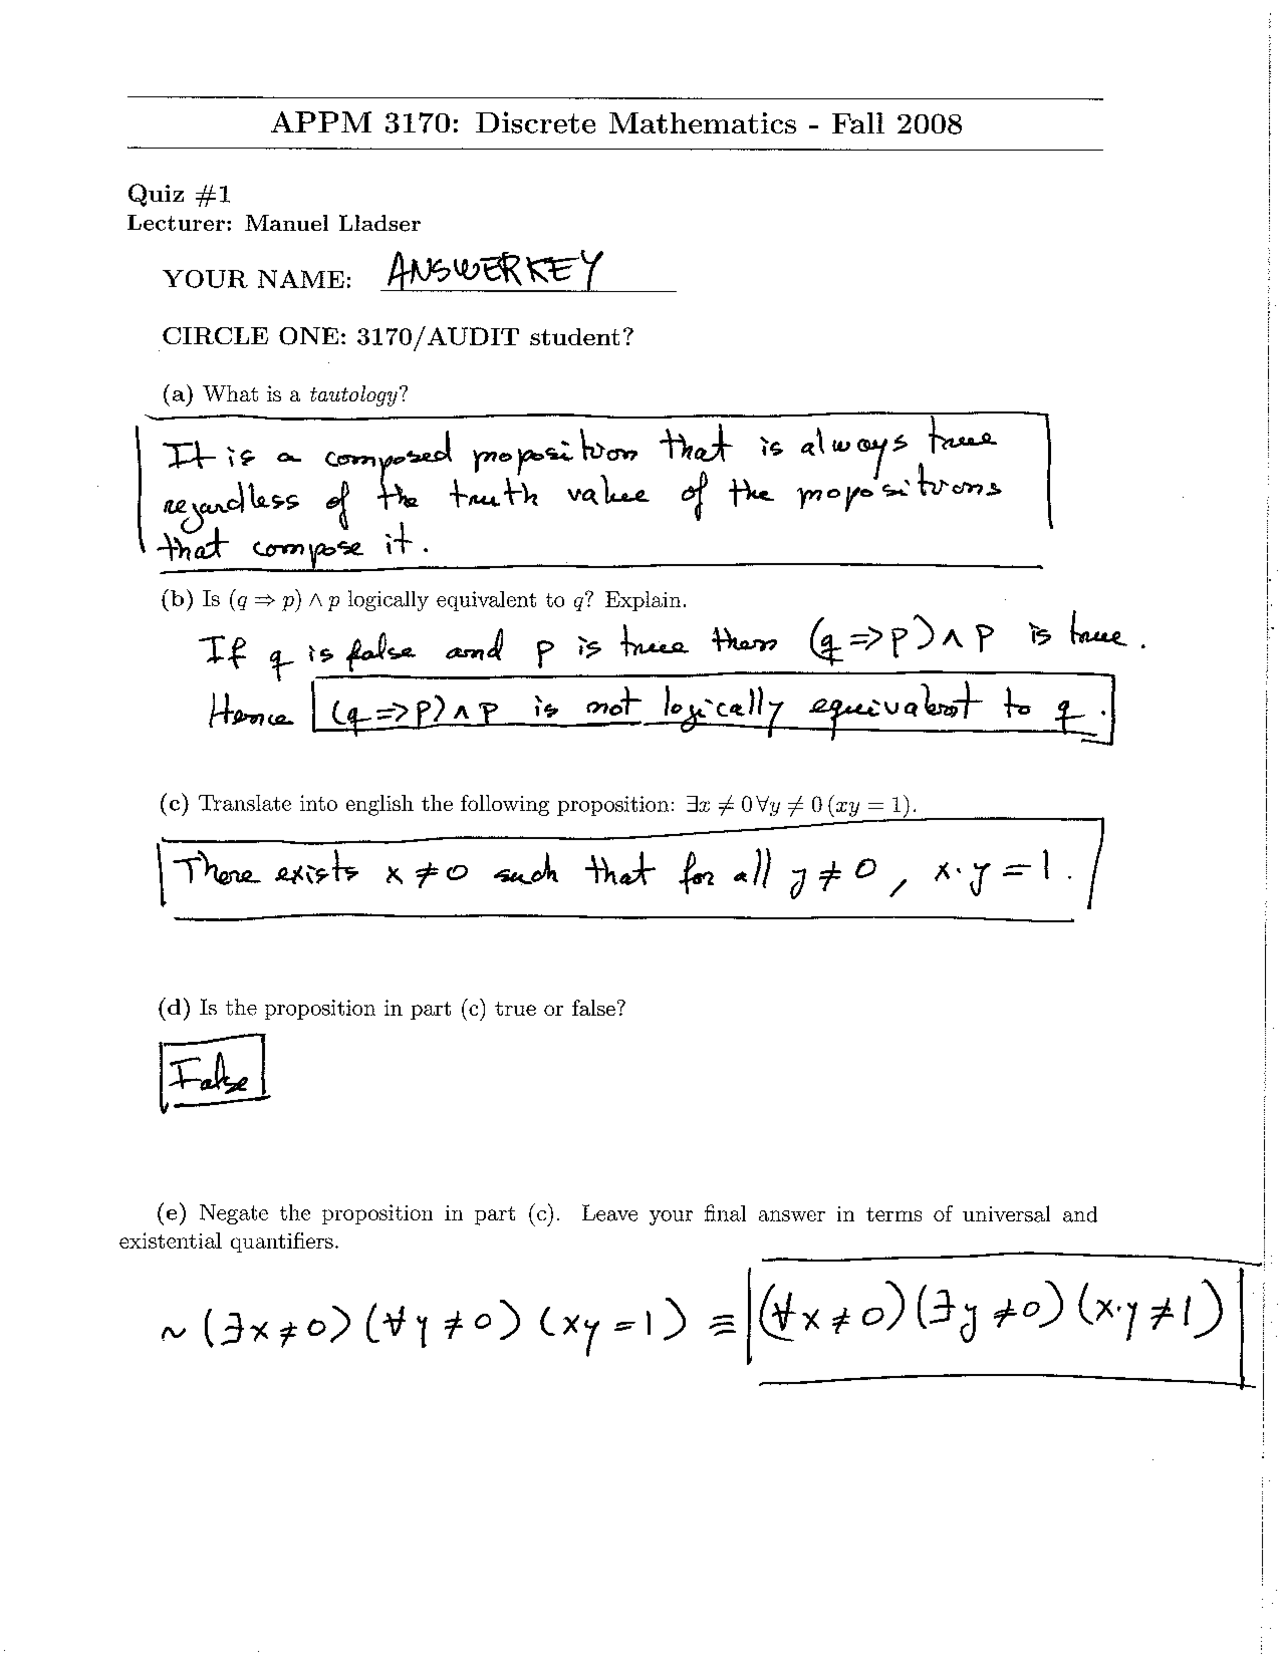 APPM 3170: Discrete Mathematics - Fall 2008
Quiz #1
Lecturer: Manuel Lladser
YOUR NAME: ANSWER KEY
CIRCLE ONE: 3170/AUDIT student?
(a) What is a tautology?
It is a composed proposition that is always true
regardless of the truth value of the propositions
that compose it.
(b) Is (q ⇒ p) ∧ p logically equivalent to q? Explain.
If q is false and p is true then (q ⇒ p) ∧ p is true.
Hence (q ⇒ p) ∧ p is not logically equivalent to q.
(c) Translate into english the following proposition: ∃x ≠ 0 ∀y ≠ 0 (xy = 1).
There exists x ≠ 0 such that for all y ≠ 0, x·y = 1.
(d) Is the proposition in part (c) true or false?
False
(e) Negate the proposition in part (c). Leave your final answer in terms of universal and
existential quantifiers.
~ (∃x ≠ 0) (∀y ≠ 0) (xy = 1) ≡ (∀x ≠ 0) (∃y ≠ 0) (x·y ≠ 1)